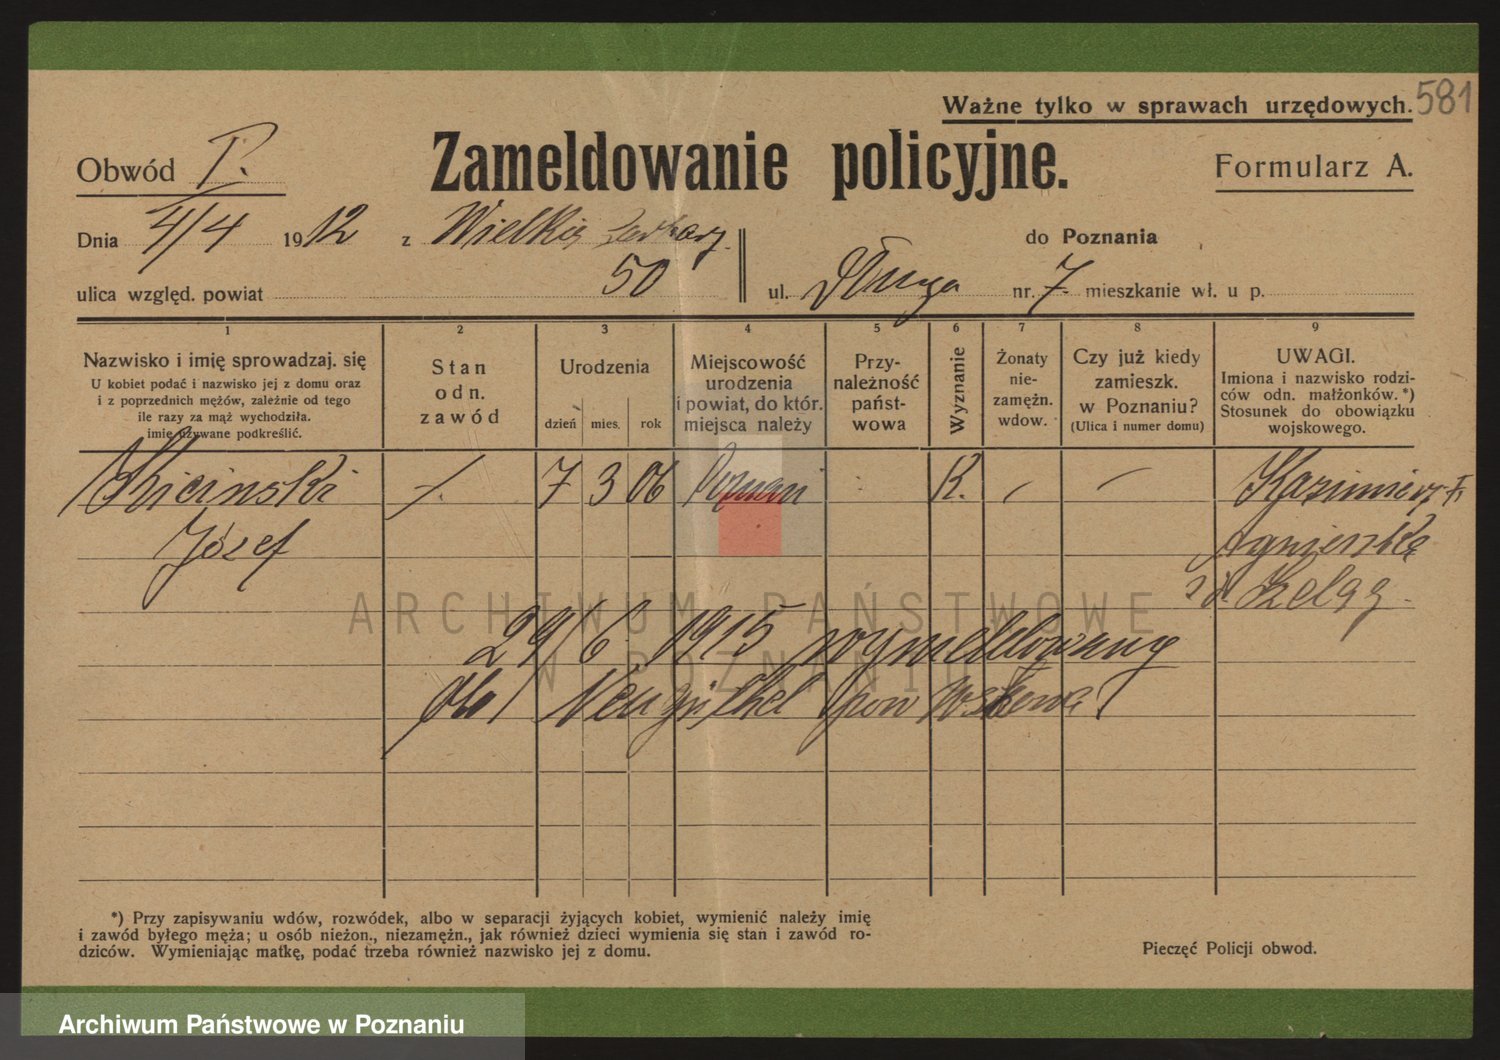 Ważne tylko w sprawach urzędowych. 581
Obwód I. Zameldowanie policyjne. Formularz A.
Dnia 4/4 1912 z Wielkie do Poznania
ulica względ. powiat 50 ul. Długa nr. 7 mieszkanie wł. u p.
1 2 3 4 5 6 7 8 9
Nazwisko i imię sprowadzaj. się
U kobiet podać i nazwisko jej z domu oraz
i z poprzednich mężów, zależnie od tego
ile razy za mąż wychodziła.
imię używane podkreślić.
Stan
odn.
zawód
Urodzenia
dzień mies. rok
Miejscowość
urodzenia
i powiat, do któr.
miejsca należy
Przy-
należność
państ-
wowa
Wyznanie
Żonaty
nie-
zamężn.
wdow.
Czy już kiedy
zamieszk.
w Poznaniu?
(Ulica i numer domu)
UWAGI.
Imiona i nazwisko rodzi-
ców odn. małżonków.*)
Stosunek do obowiązku
wojskowego.
7 3 06 Poznań K. Kazimierz
Józef Agnieszka
zd. Szeląg
29/6 1915 wymeldowany
ARCHIWUM PAŃSTWOWE
W POZNANIU
*) Przy zapisywaniu wdów, rozwódek, albo w separacji żyjących kobiet, wymienić należy imię
i zawód byłego męża; u osób nieżon., niezamężn., jak również dzieci wymienia się stan i zawód ro-
dziców. Wymieniając matkę, podać trzeba również nazwisko jej z domu.
Pieczęć Policji obwod.
Archiwum Państwowe w Poznaniu